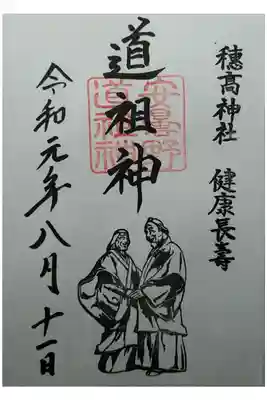 穂高神社 健康長寿
道祖神
安曇野
道祖神
令和元年八月十一日